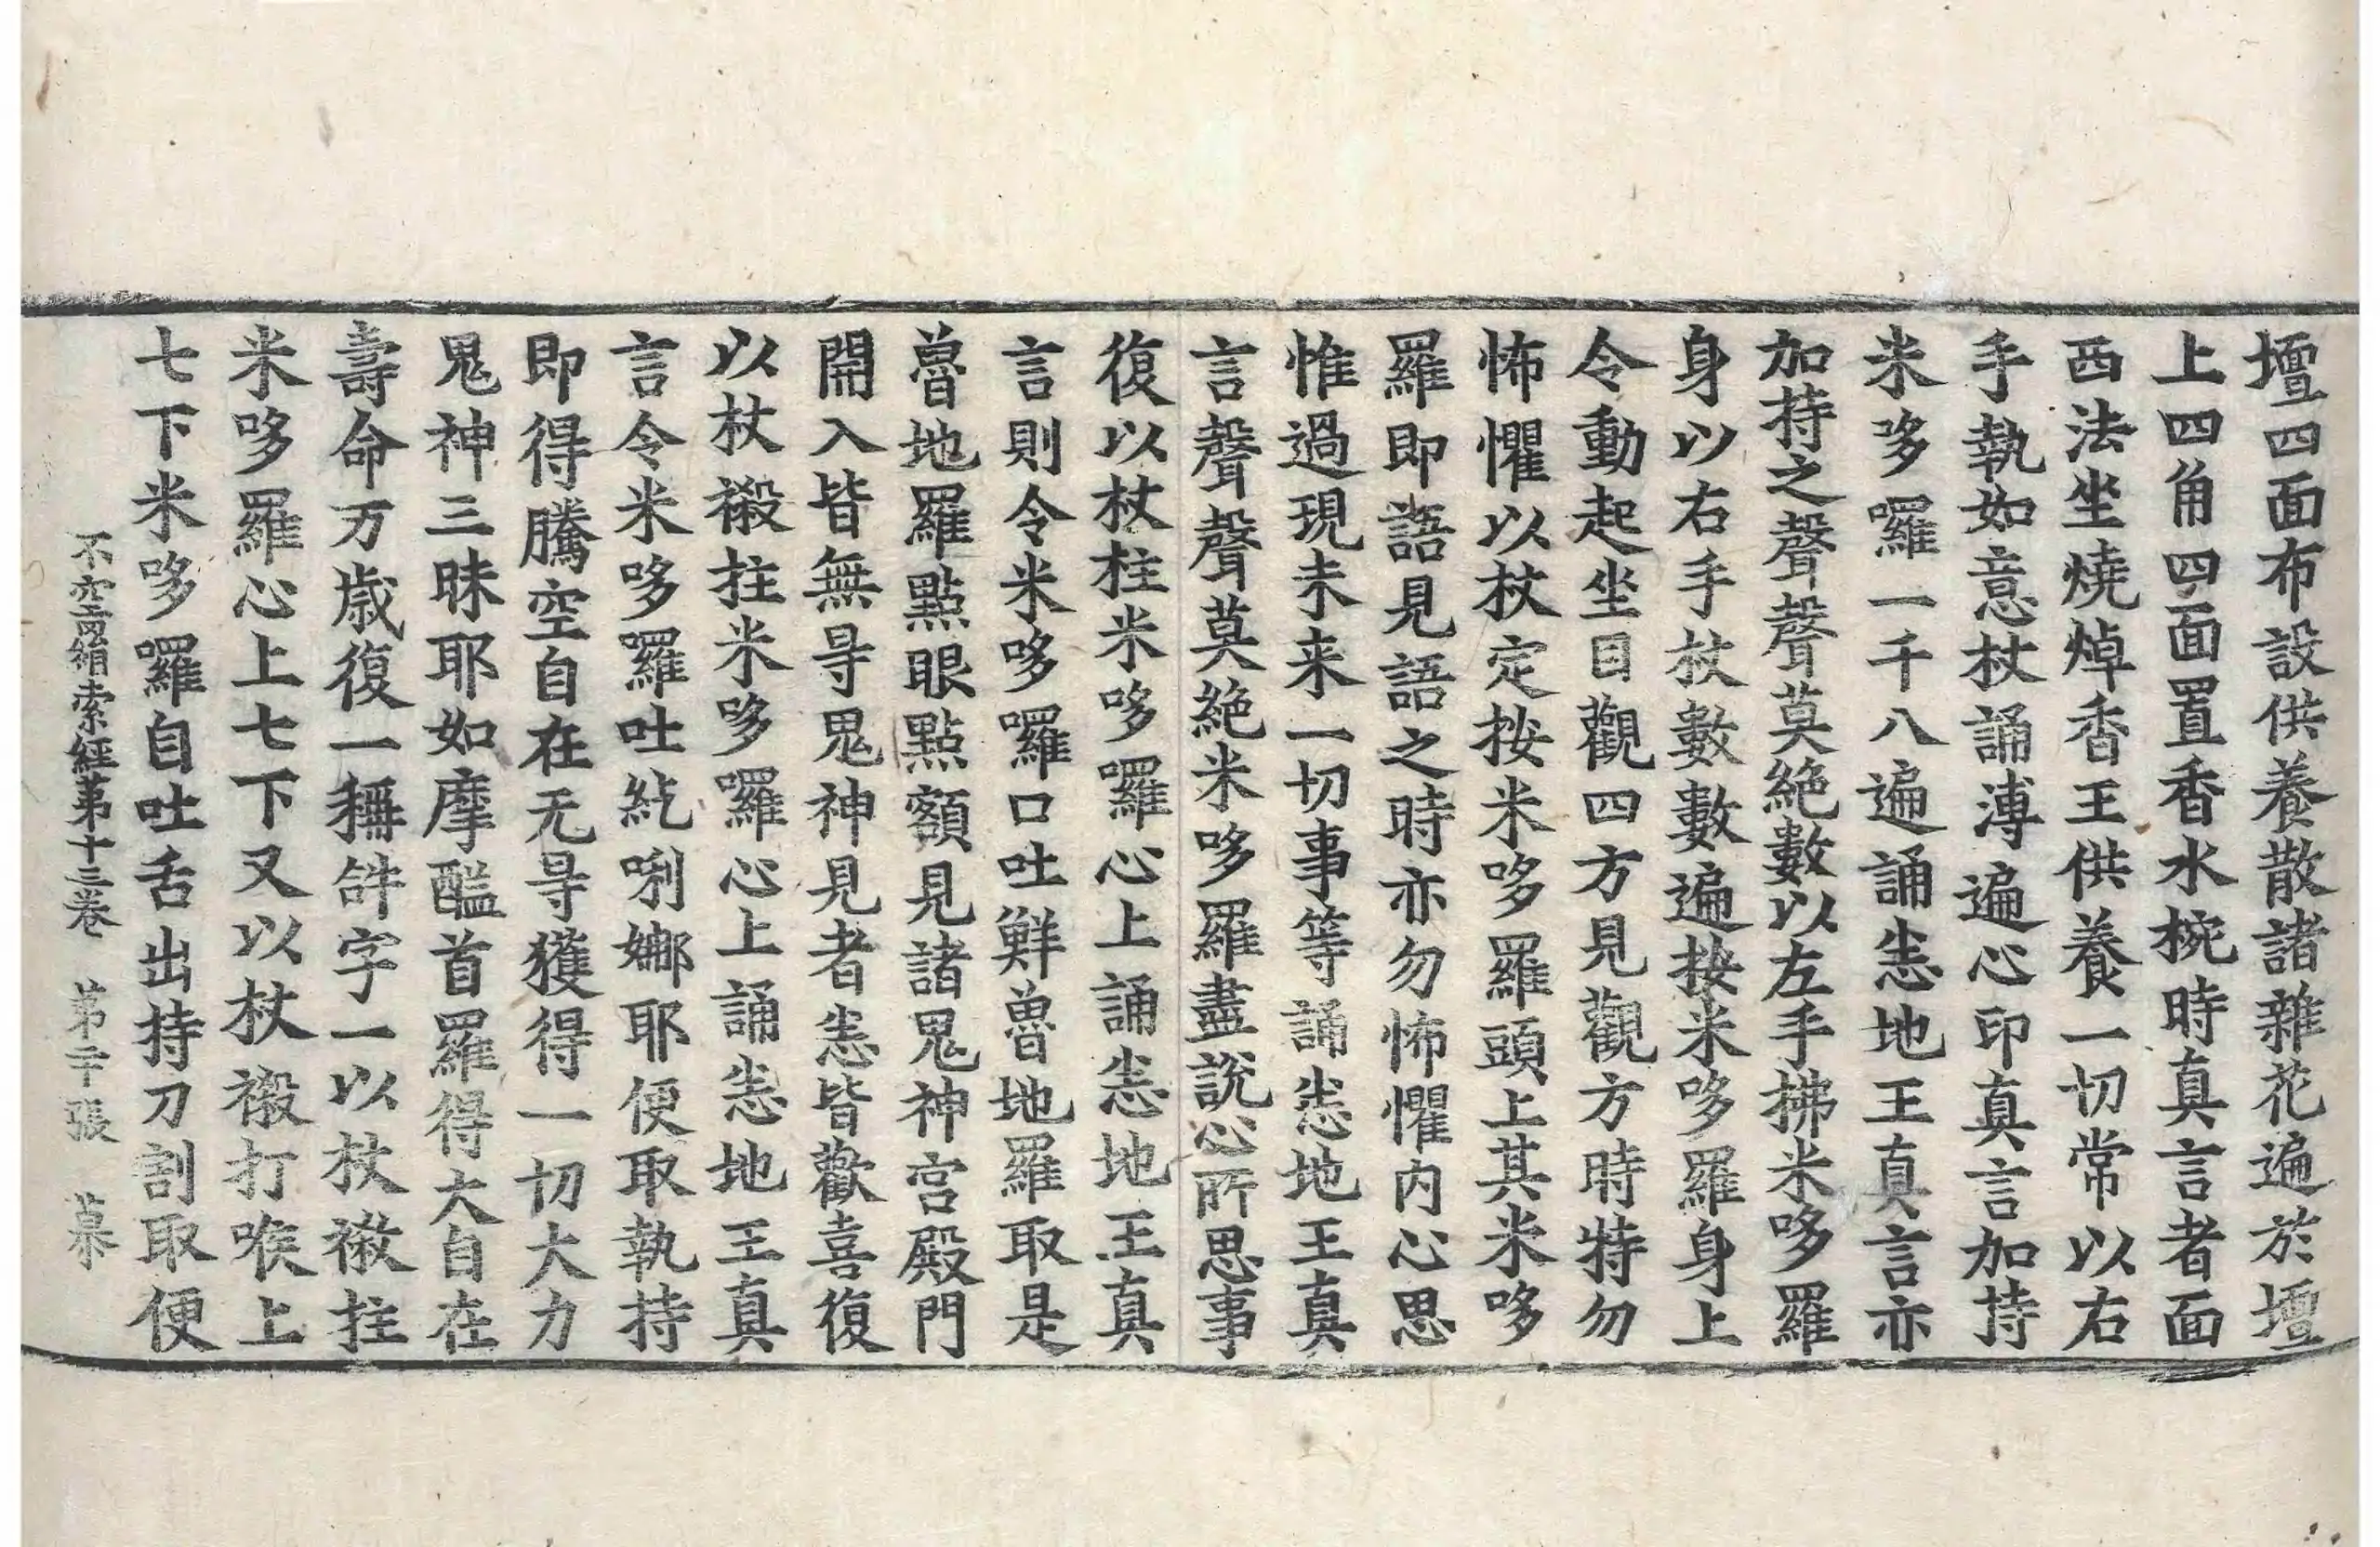 壇四面布設供養散諸雜花遍於壇
上四角四面置香水椀時真言者面
西法坐燒焯香王供養一切常以右
手執如意杖誦溥遍心印真言加持
米哆囉一千八遍誦悉地王真言亦
加持之聲聲莫絶數以左手拂米哆羅
身以右手杖數數遍按米哆羅身上
令動起坐目觀四方見觀方時特勿
怖懼以杖定按米哆羅頭上其米哆
羅即語見語之時亦勿怖懼内心思
惟過現未来一切事等誦悉地王真
言聲聲莫絶米哆羅盡說心所思事
復以杖柱米哆囉心上誦悉地王真
言則令米哆囉口吐鮮魯地羅取是
魯地羅點眼點額見諸鬼神宫殿門
開入皆無㝵鬼神見者悉皆歡喜復
以杖𥚢拄米哆囉心上誦悉地王真
言令米哆羅吐紇唎娜耶便取執持
即得騰空自在无㝵獲得一切大力
鬼神三昧耶如摩醯首羅得大自在
壽命万歳復一稱𤙖字一以杖𥚢拄
米哆羅心上七下又以杖𥚢打喉上
七下米哆囉自吐舌出持刀割取便
不空羂索經第十三卷 第二十張 慕